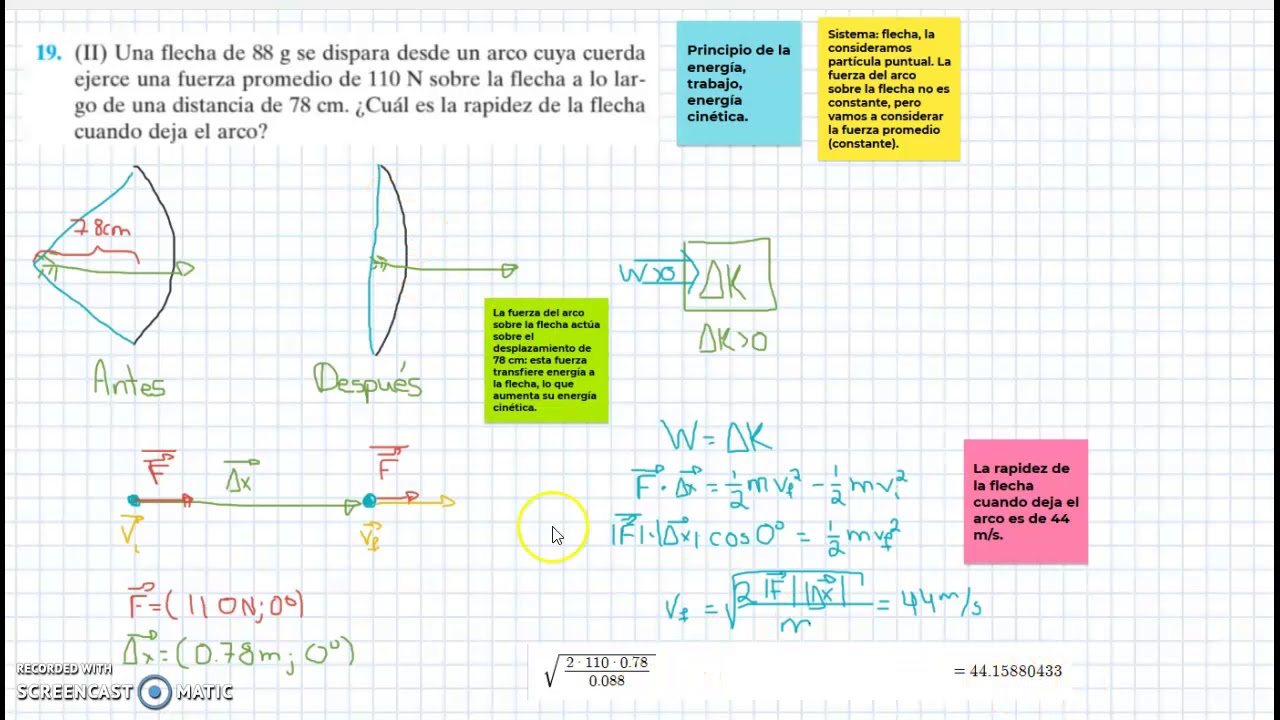 19. (II) Una flecha de 88 g se dispara desde un arco cuya cuerda
ejerce una fuerza promedio de 110 N sobre la flecha a lo lar-
go de una distancia de 78 cm. ¿Cuál es la rapidez de la flecha
cuando deja el arco?
Principio de la
energía,
trabajo,
energía
cinética.
Sistema: flecha, la
consideramos
partícula puntual. La
fuerza del arco
sobre la flecha no es
constante, pero
vamos a considerar
la fuerza promedio
(constante).
78cm
Antes
Después
La fuerza del arco
sobre la flecha actúa
sobre el
desplazamiento de
78 cm: esta fuerza
transfiere energía a
la flecha, lo que
aumenta su energía
cinética.
W>0
ΔK
ΔK>0
F⃗
Δx⃗
F⃗
V⃗i
V⃗f
F⃗=(110N;0°)
Δx⃗=(0.78m; 0°)
W = ΔK
F⃗ · Δx⃗ = 1/2 m vf² − 1/2 m vi²
|F⃗|·|Δx⃗| cos0° = 1/2 m vf²
Vf = √(2|F⃗||Δx⃗| / m) = 44 m/s
La rapidez de
la flecha
cuando deja el
arco es de 44
m/s.
√(2 · 110 · 0.78 / 0.088) = 44.15880433
RECORDED WITH
SCREENCAST MATIC